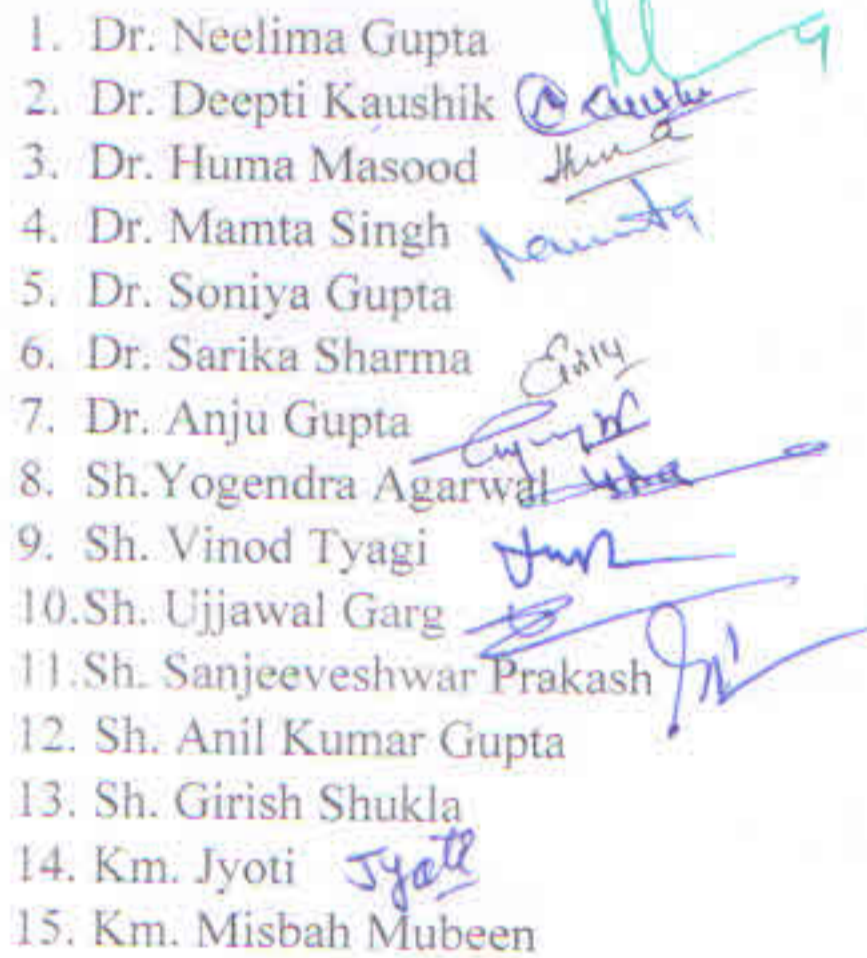 1. Dr. Neelima Gupta
2. Dr. Deepti Kaushik
3. Dr. Huma Masood Huma
4. Dr. Mamta Singh Mamta
5. Dr. Soniya Gupta
6. Dr. Sarika Sharma
7. Dr. Anju Gupta
8. Sh.Yogendra Agarwal
9. Sh. Vinod Tyagi
10.Sh. Ujjawal Garg
11.Sh. Sanjeeveshwar Prakash
12. Sh. Anil Kumar Gupta
13. Sh. Girish Shukla
14. Km. Jyoti Jyoti
15. Km. Misbah Mubeen